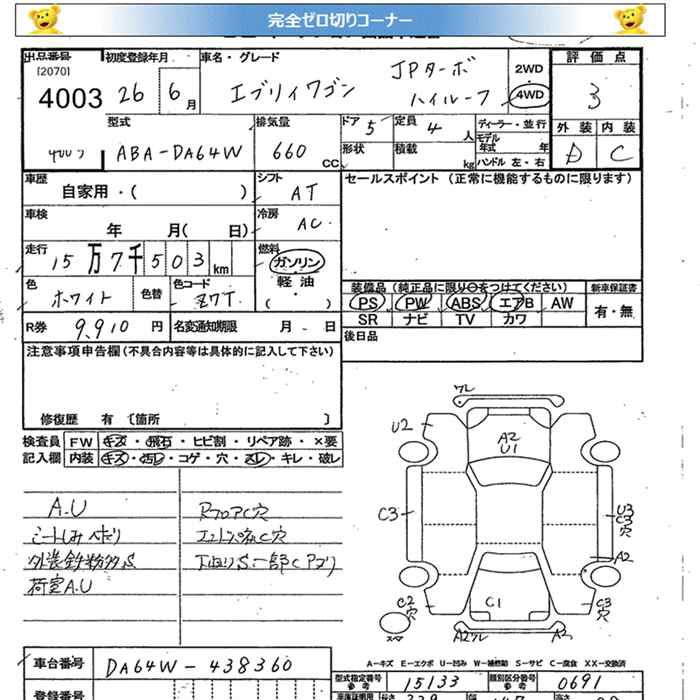 完全ゼロ切りコーナー
出品番号 初度登録年月 車名・グレード 評価点
[2070]
4003 26 6月 エブリィワゴン JPターボ ハイルーフ 2WD 4WD 3
外装 内装
D C
型式 排気量 ドア 5 定員 4人 ディーラー・並行
ABA-DA64W 660 CC 形状 積載 kg モデル年式 年 ハンドル 左・右
車歴 シフト セールスポイント (正常に機能するものに限ります)
自家用・( ) AT
車検 冷房
年 月( 日) AC
走行 燃料
15万7千503km ガソリン
軽油
( ・ )
色 色替 色コード
ホワイト Z7T
装備品 (純正品に限り○をつけてください) 新車保証書
PS PW ABS エアB AW 有・無
SR ナビ TV カワ
R券 9,910 円 名変通知期限 月 日 後日品
注意事項申告欄 (不具合内容等は具体的に記入して下さい)
修復歴 有 〔箇所 〕
検査員 FW キズ・飛石・ヒビ割・リペア跡・×要
記入欄 内装 キズ・汚レ・コゲ・穴・スレ・キレ・破レ
A.U
シートしみ ヘボリ
外装鉄粉多S
荷室A.U
RフロアC穴
エンドパネC穴
下廻りS.一部Cアナ
ワレ
U2
A2
U1
C3
U3
C3
穴
A2
C2
穴
C1
C3
穴
A2ワレ
A2
A-キズ E-エクボ U-凹み W-補修跡 S-サビ C-腐食 XX-交換済
車台番号 DA64W-438360
型式指定番号 15133 類別区分番号 0691
参考 参考
登録番号